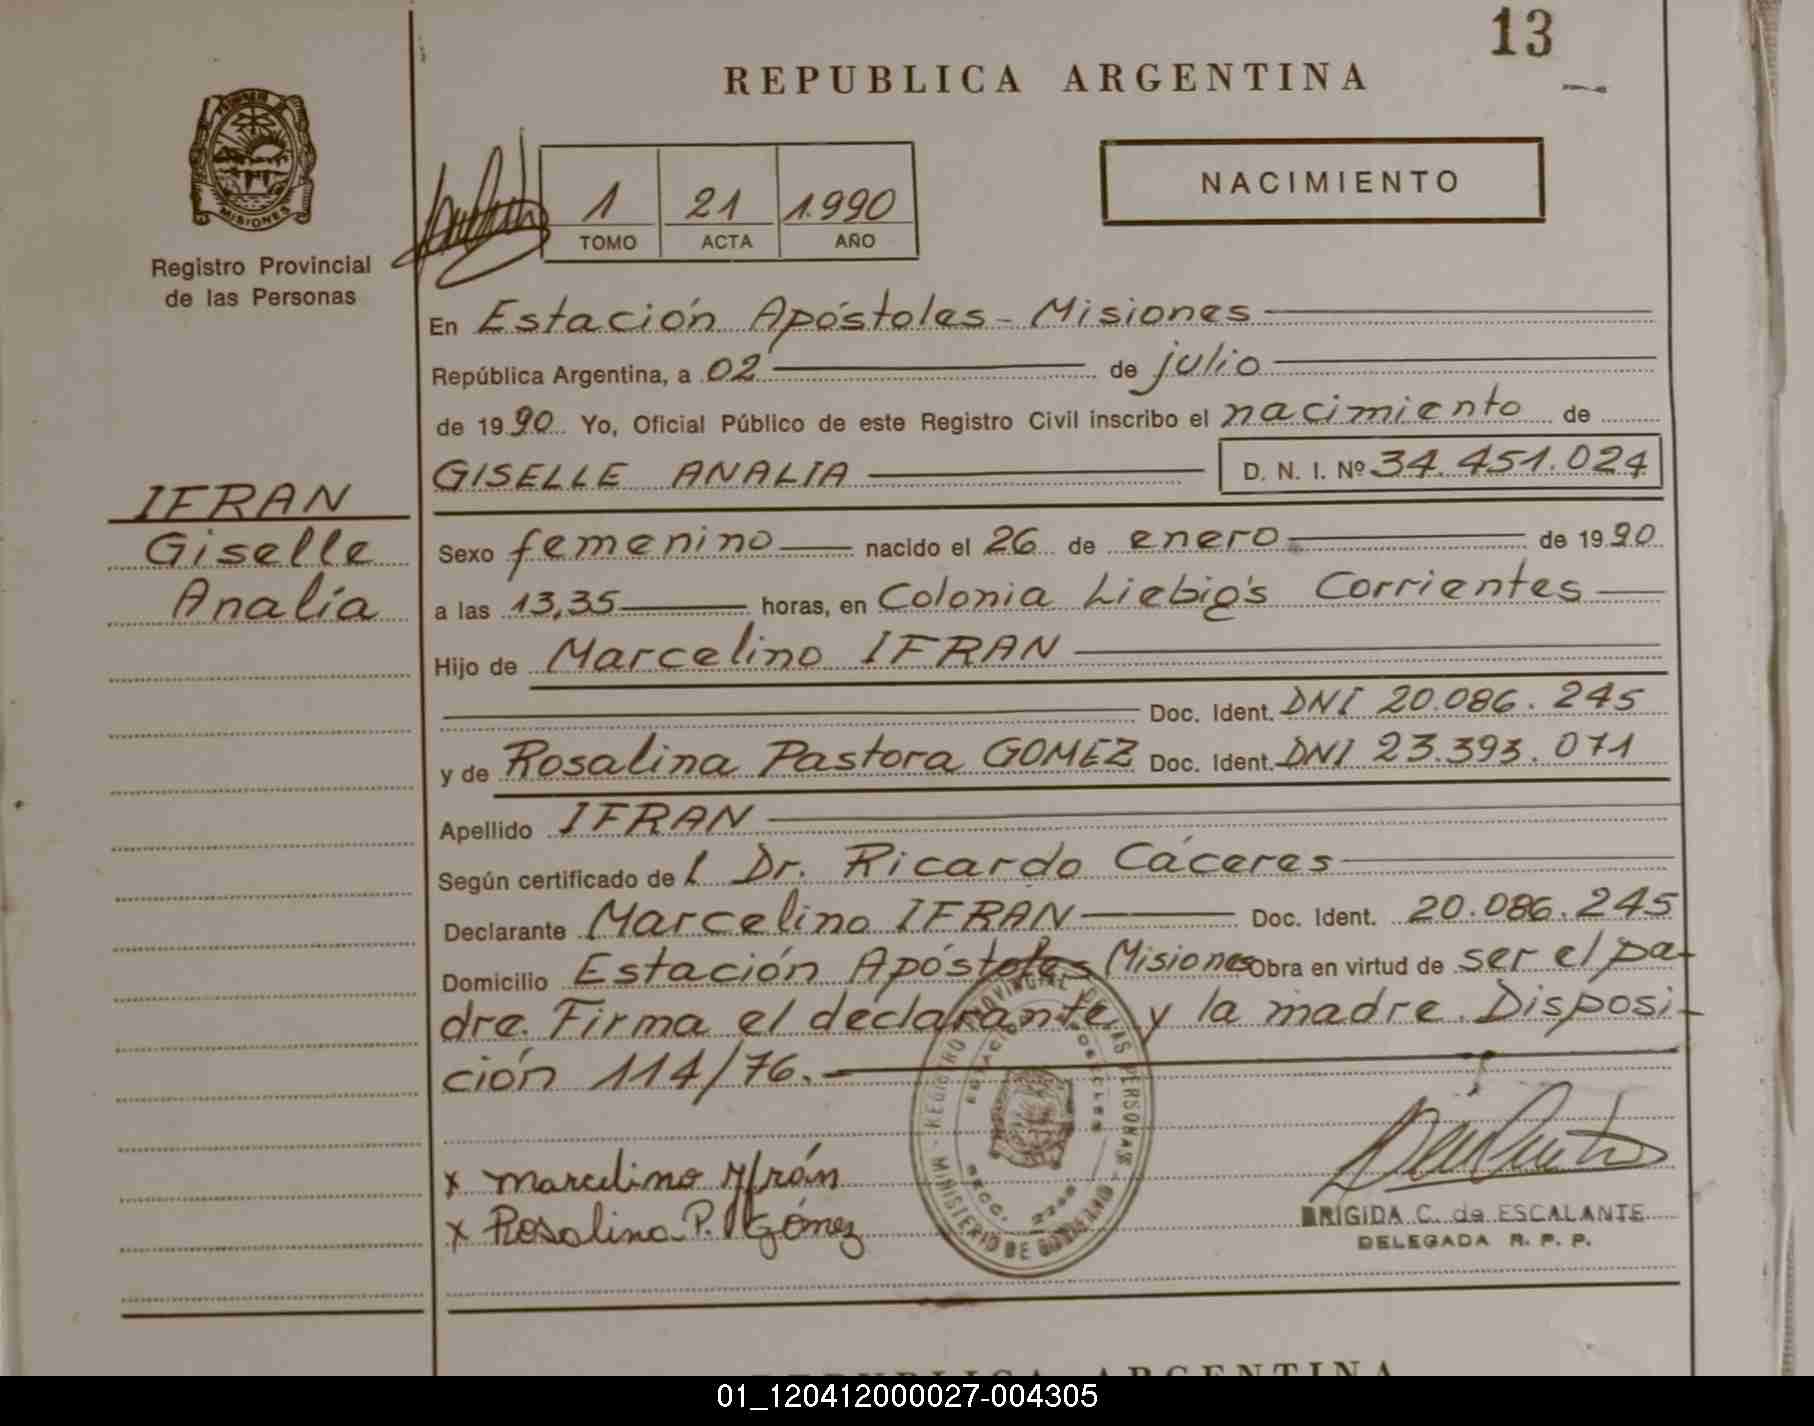 13
REPUBLICA ARGENTINA
MISIONES
Registro Provincial
de las Personas
1 21 1.990
TOMO ACTA AÑO
NACIMIENTO
En Estación Apóstoles - Misiones
República Argentina, a 02 de julio
de 1990 Yo, Oficial Público de este Registro Civil inscribo el nacimiento de
GISELLE ANALIA D. N. I. Nº 34.451.024
IFRAN
Giselle
Analía
Sexo femenino nacido el 26 de enero de 1990
a las 13,35 horas, en Colonia Liebig's Corrientes
Hijo de Marcelino IFRAN
Doc. Ident. DNI 20.086.245
y de Rosalina Pastora GOMEZ Doc. Ident. DNI 23.393.071
Apellido IFRAN
Según certificado de l Dr. Ricardo Cáceres
Declarante Marcelino IFRAN Doc. Ident. 20.086.245
Domicilio Estación Apóstoles Misiones Obra en virtud de ser el pa-
dre. Firma el declarante y la madre. Disposi-
ción 114/76.
REGISTRO PROVINCIAL DE LAS PERSONAS
MINISTERIO DE
x Marcelino Yfrán
x Rosalina P. Gómez
BRIGIDA C. de ESCALANTE
DELEGADA R. P. P.
REPUBLICA ARGENTINA
01_120412000027-004305